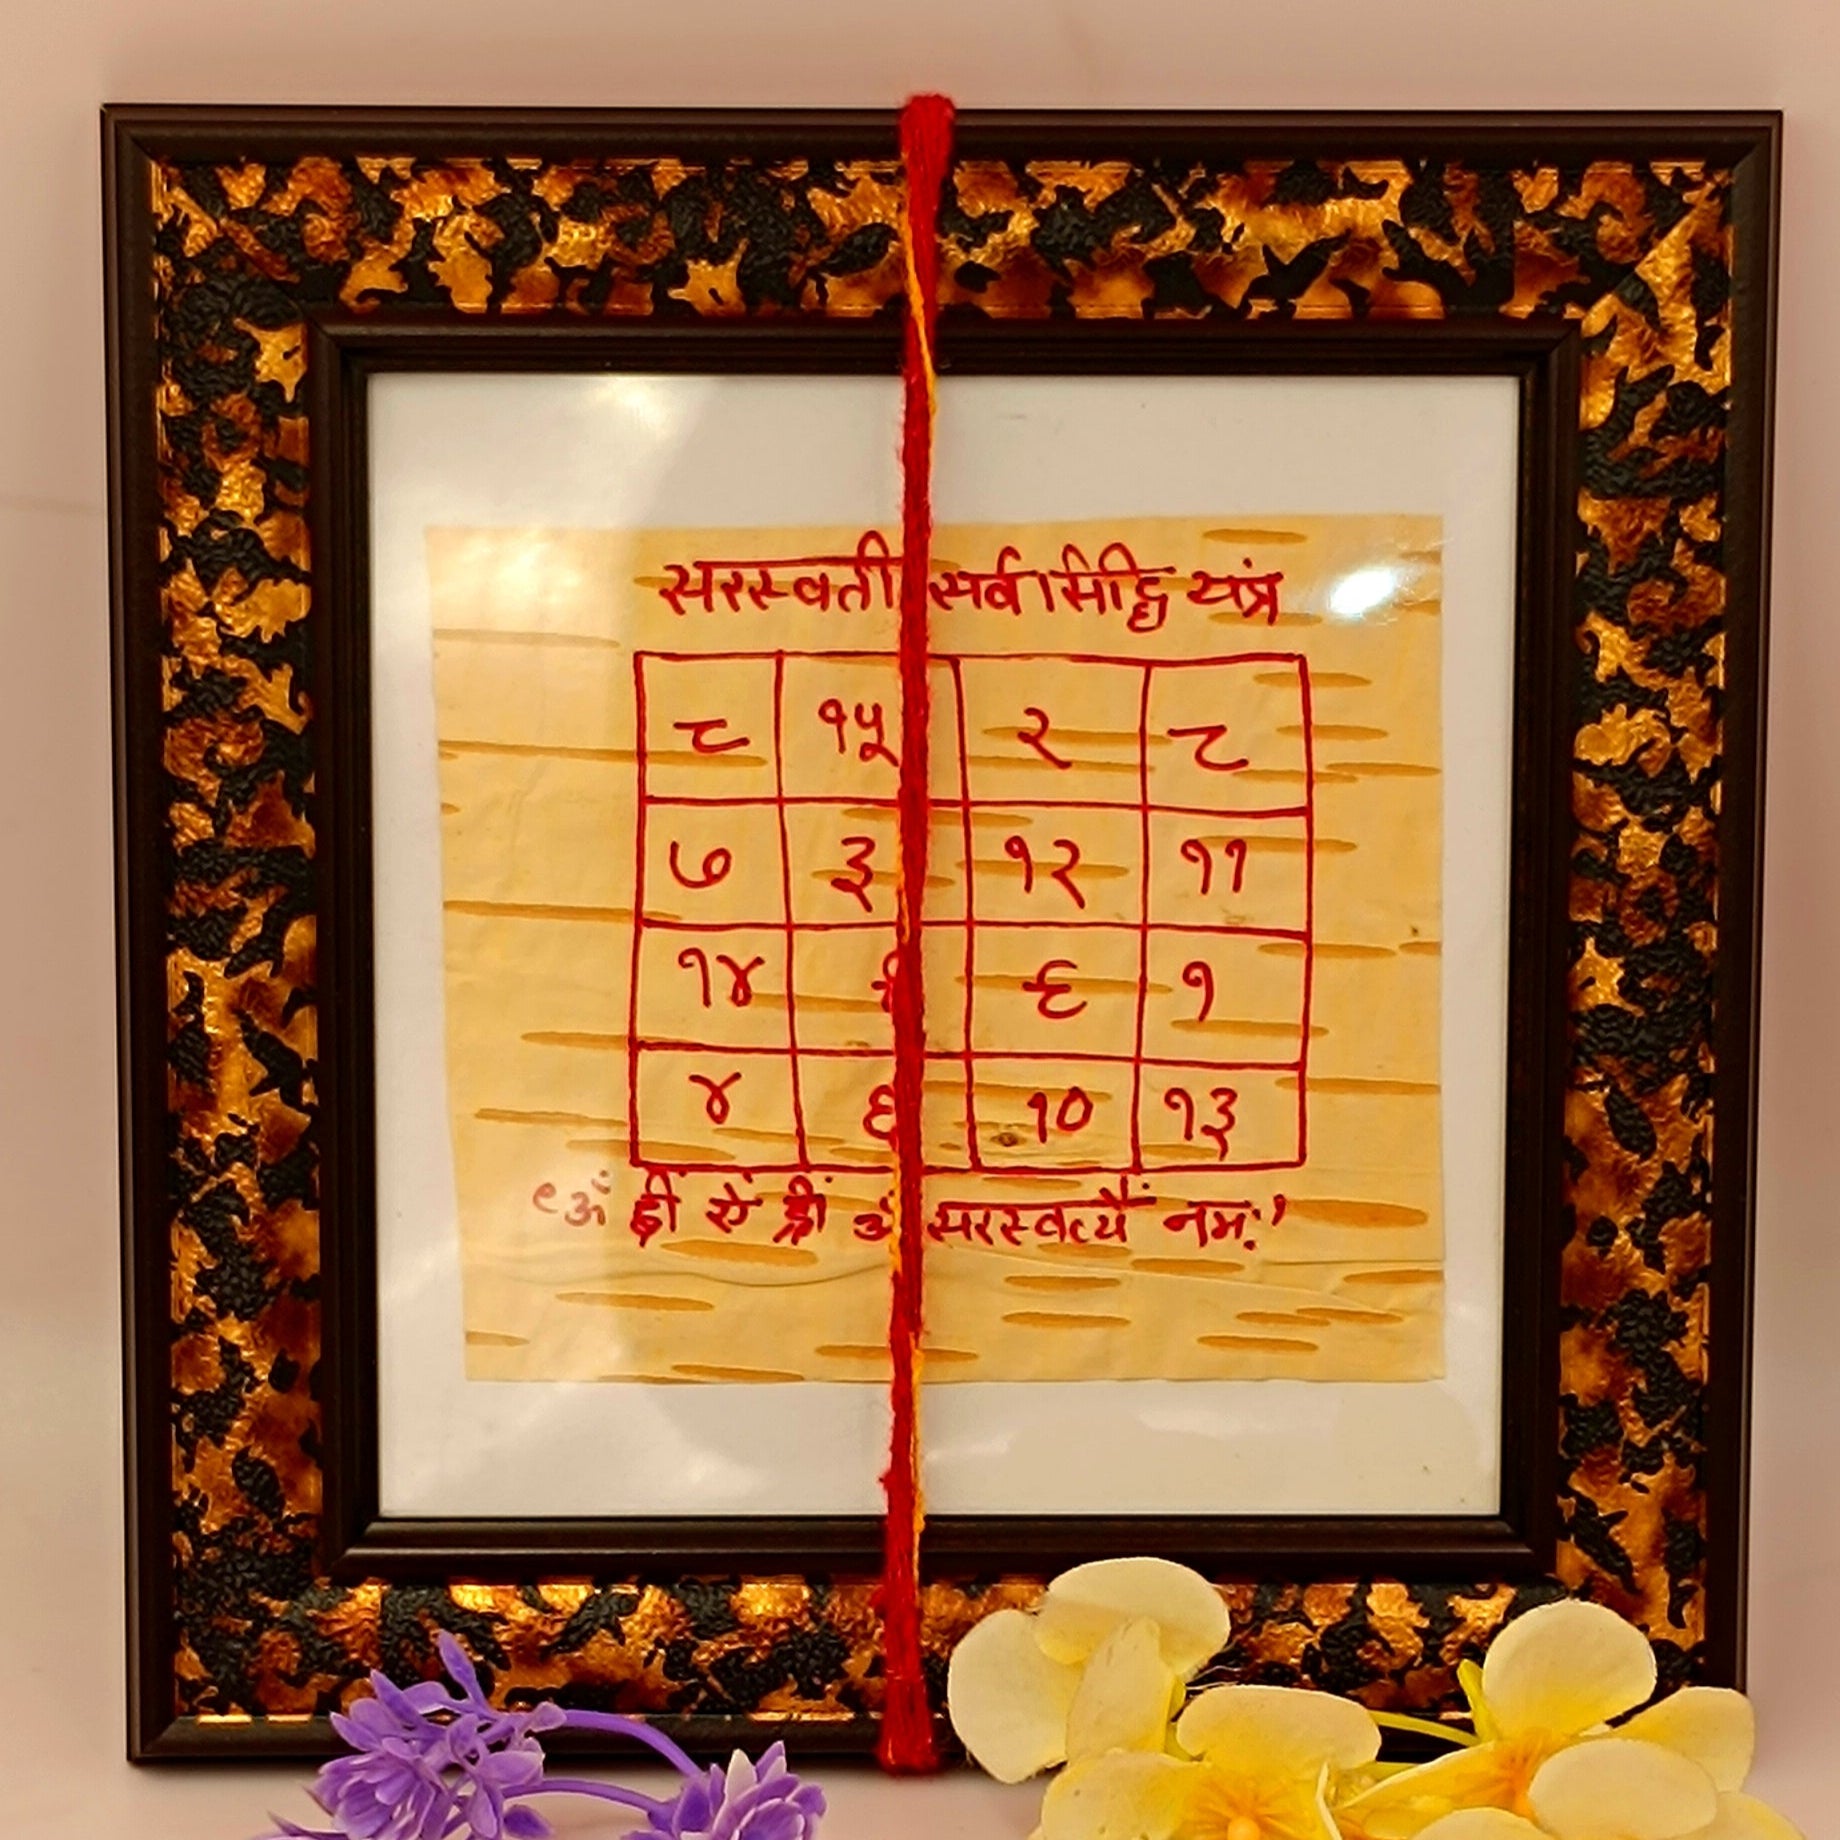 सरस्वती सर्व सिद्धि यंत्र
८ १५ २ ८
७ ३ १२ ११
१४ ६ १
४ १० १३
ॐ ह्रीं ऐं श्रीं ॐ सरस्वत्यै नमः